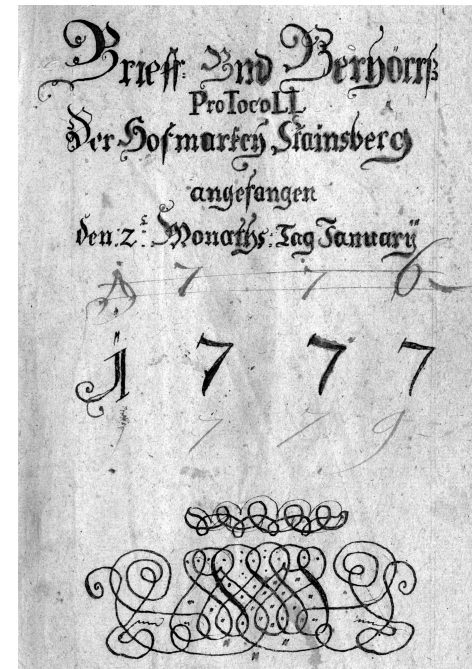 Brieff: Und Verhörrß
ProTocoLL
Der Hofmarkch Stainsberg
angefangen
den: 2:t Monaths: Tag January
A 7 7 6
1 7 7 7
7 7 9